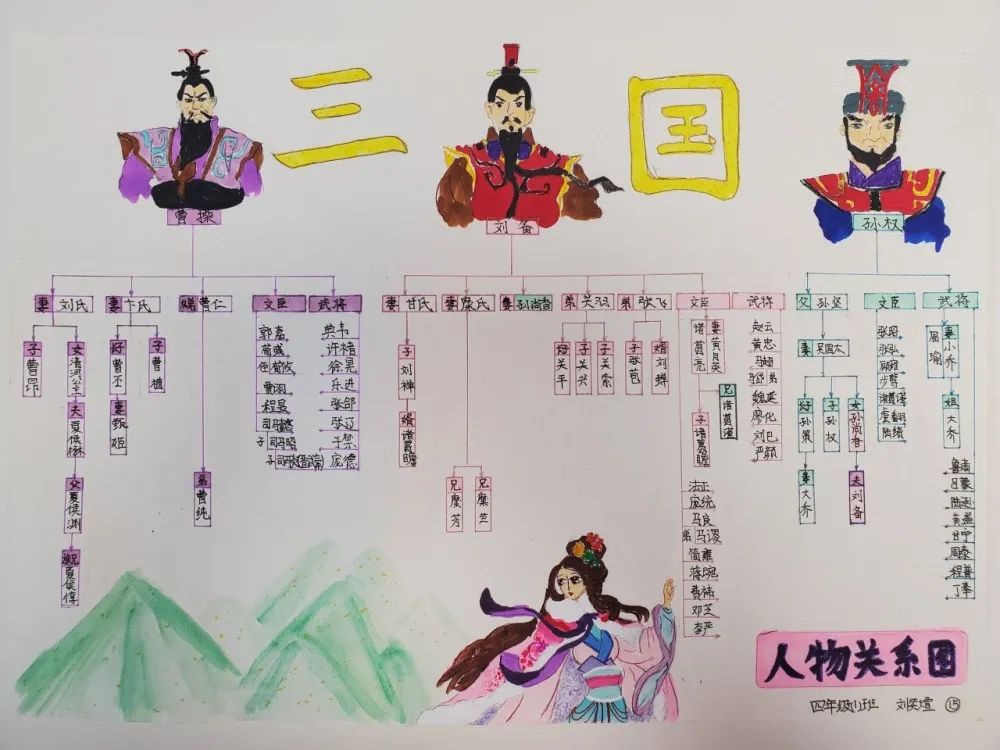 三国
曹操
刘备
孙权
妻 刘氏
妻 卞氏
曹仁
文臣
武将
妻 甘氏
妻 糜氏
妻 孙尚香
弟 关羽
弟 张飞
文臣
武将
父 孙坚
文臣
武将
子 曹昂
女 清河公主
夫 夏侯楙
父 夏侯渊
夏侯惇
曹丕
妻 甄姬
子 曹植
弟 曹纯
郭嘉
荀彧
荀攸
曹羽
程昱
司马懿
子 司马昭
子 司马师
典韦
许褚
徐晃
乐进
张郃
张辽
于禁
庞德
子 刘禅
婿 诸葛瞻
兄 糜芳
兄 糜竺
关平
子 关兴
子 关索
子 张苞
婿 刘禅
诸葛亮
妻 黄月英
兄 诸葛瑾
子 诸葛瞻
法正
庞统
马良
弟 马谡
简雍
蒋琬
费祎
邓芝
李严
赵云
黄忠
马超
马岱 弟
魏延
廖化
刘巴
严颜
妻 吴国太
孙策
妻 大乔
子 孙权
女 孙尚香
夫 刘备
张昭
张弘
顾雍
步骘
诸葛瑾
虞翻
陆绩
周瑜
妻 小乔
姐 大乔
鲁肃
吕蒙
陆逊
黄盖
甘宁
周泰
程普
丁奉
人物关系图
四年级11班 刘笑煊 15